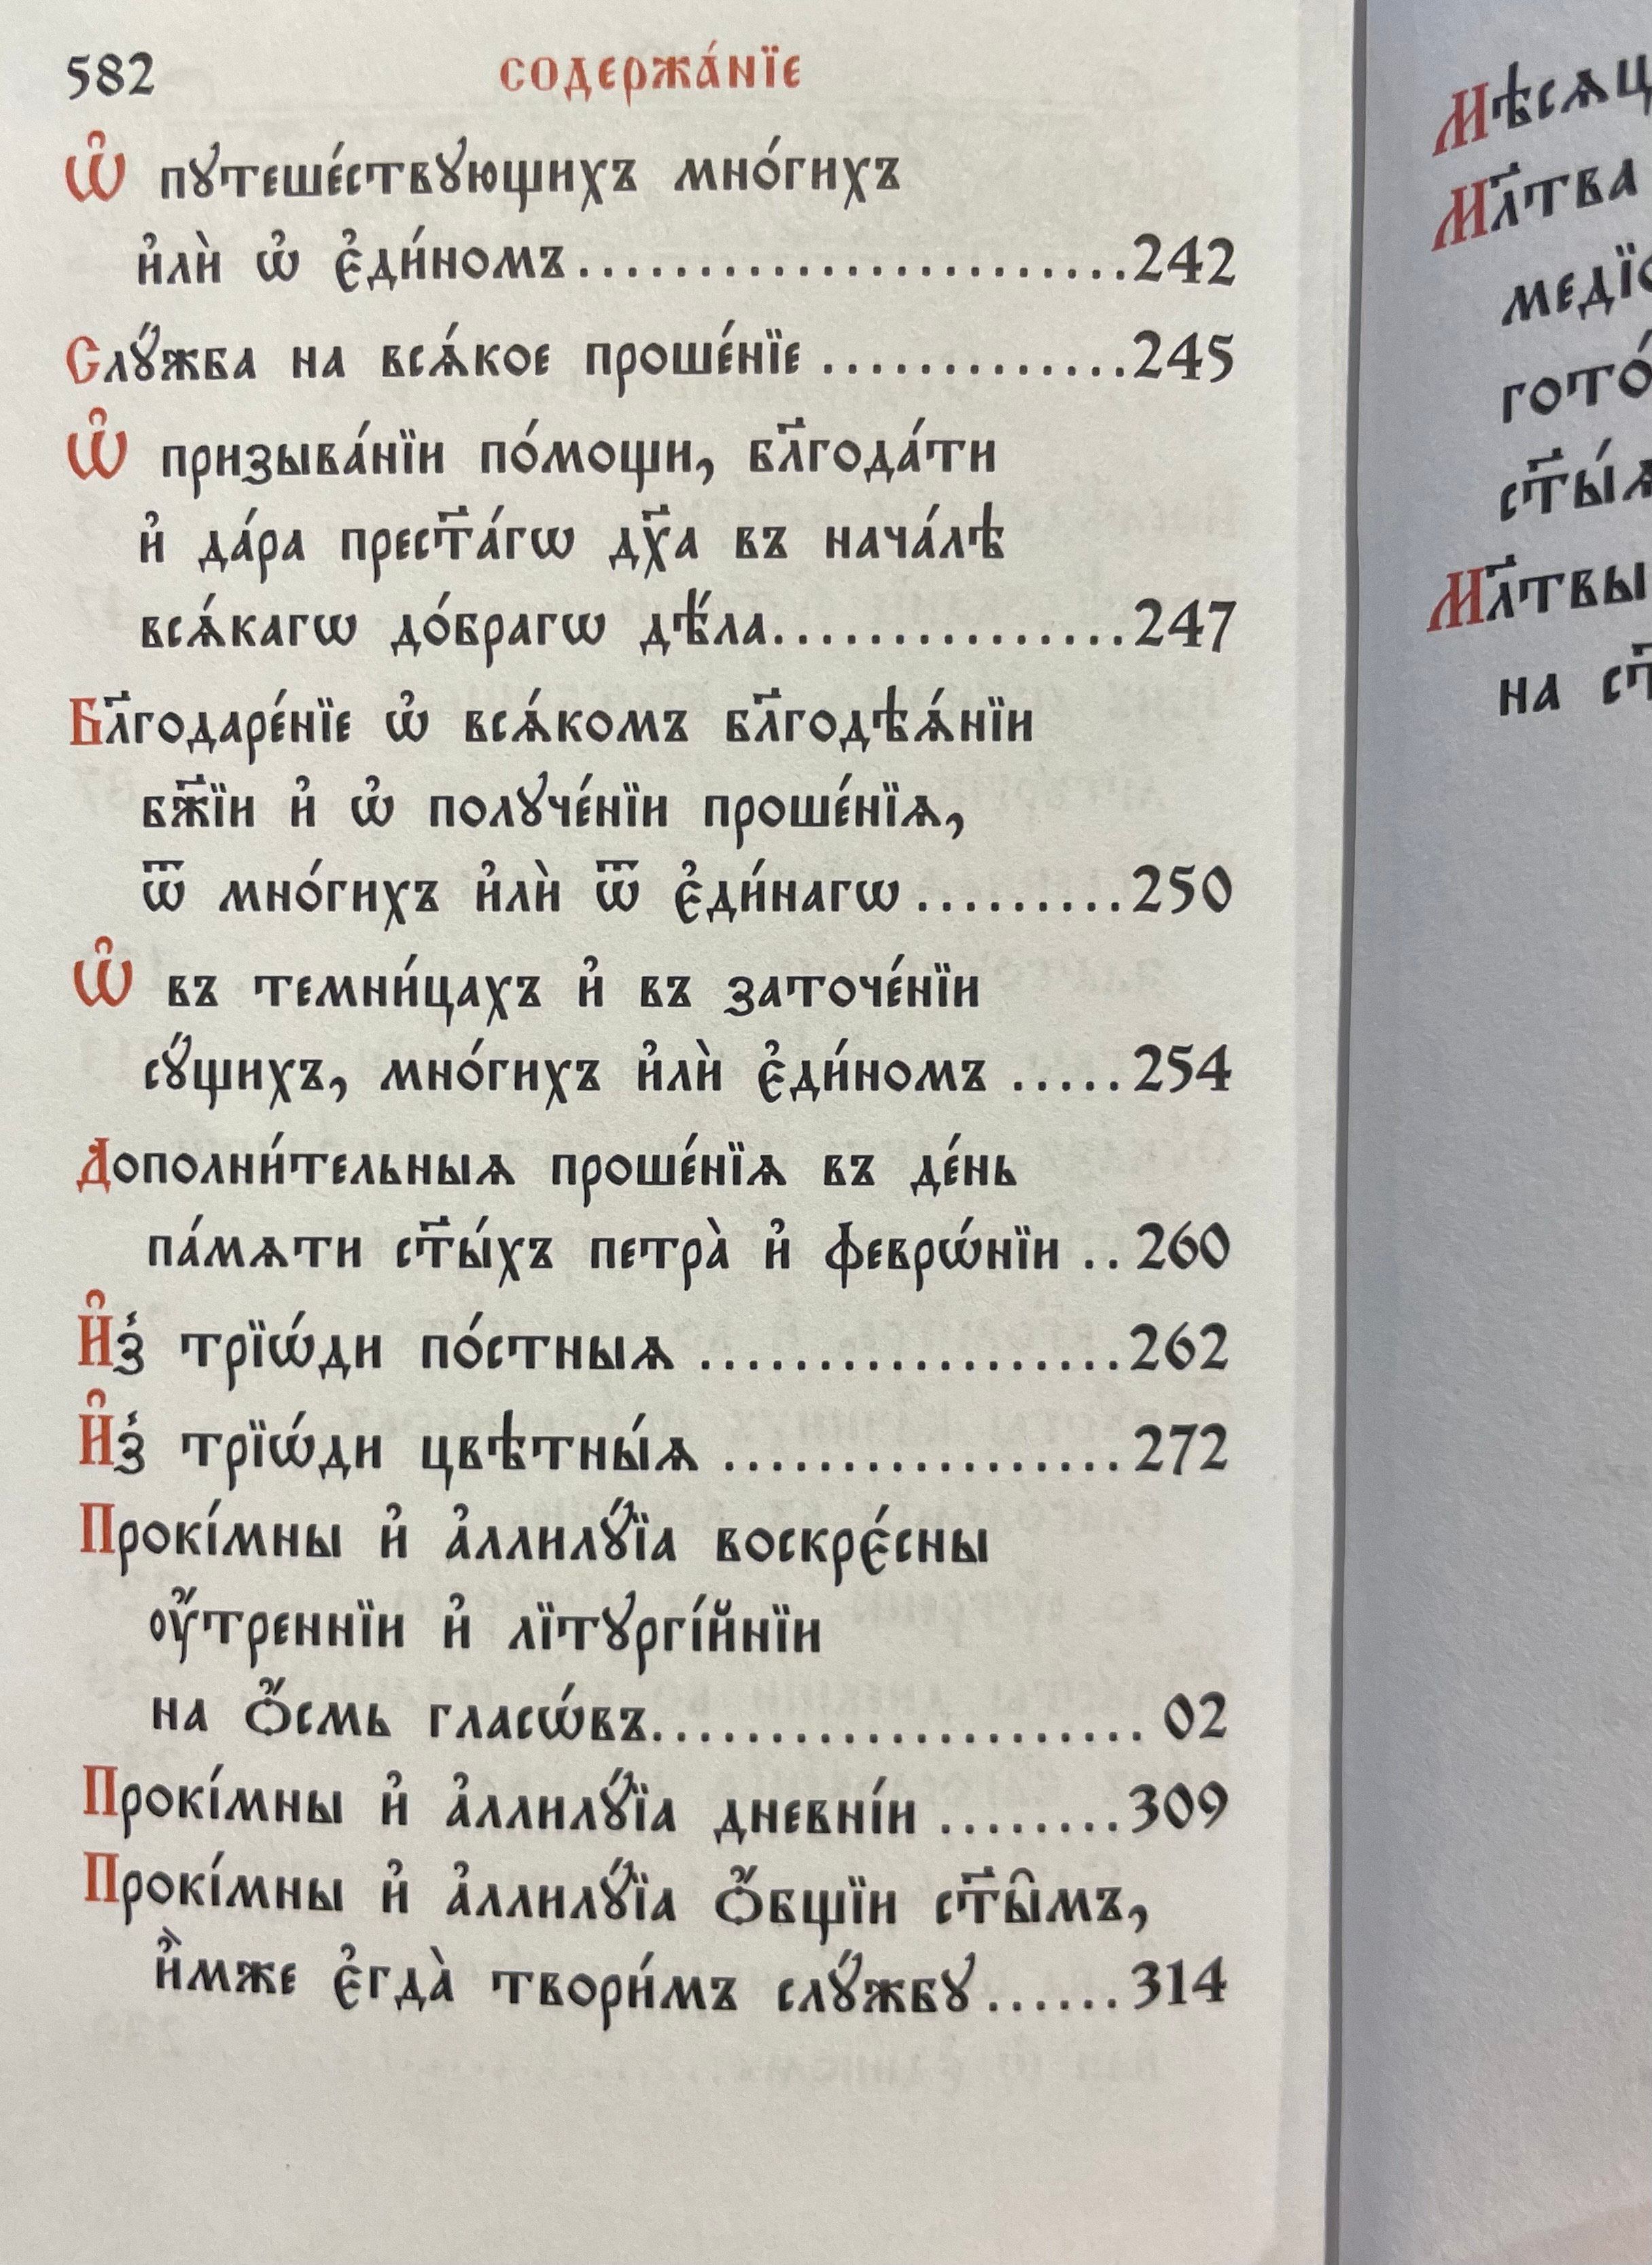 582 содержа́нїе
Ѡ҆ пꙋтеше́ствꙋющихъ мно́гихъ
и҆лѝ ѡ҆ є҆ди́номъ........................242
Слꙋ́жба на всѧ́кое проше́нїе .............245
Ѡ҆ призыва́нїи по́мощи, бл҃года́ти
и҆ да́ра прест҃а́гѡ дх҃а въ нача́лѣ
всѧ́кагѡ до́брагѡ дѣ́ла................247
Бл҃годаре́нїе ѡ҆ всѧ́комъ бл҃годѣѧ́нїи
бж҃їи и҆ ѡ҆ полꙋче́нїи проше́нїѧ,
ѿ мно́гихъ и҆лѝ ѿ є҆ди́нагѡ .........250
Ѡ҆ въ темни́цахъ и҆ въ заточе́нїи
сꙋ́щихъ, мно́гихъ и҆лѝ є҆ди́номъ .....254
Дополни́тельныѧ проше́нїѧ въ де́нь
па́мѧти ст҃ы́хъ петра̀ и҆ феврѡ́нїи ..260
И҆з̾ трїѡ́ди по́стныѧ ..................262
И҆з̾ трїѡ́ди цвѣтны́ѧ .................272
Прокі́мны и҆ а҆ллилꙋ́їа воскрє́сны
ᲂу҆́треннїи и҆ лїтꙋргі́йнїи
на ѻ҆́смь гласѡ́въ..................... 02
Прокі́мны и҆ а҆ллилꙋ́їа дневні́и ........309
Прокі́мны и҆ а҆ллилꙋ́їа ѻ҆́бщїи ст҃ы̑мъ,
и҆̀мже є҆гда̀ твори́мъ слꙋ́жбꙋ......314
Мл҃тва
Мл҃твы
на